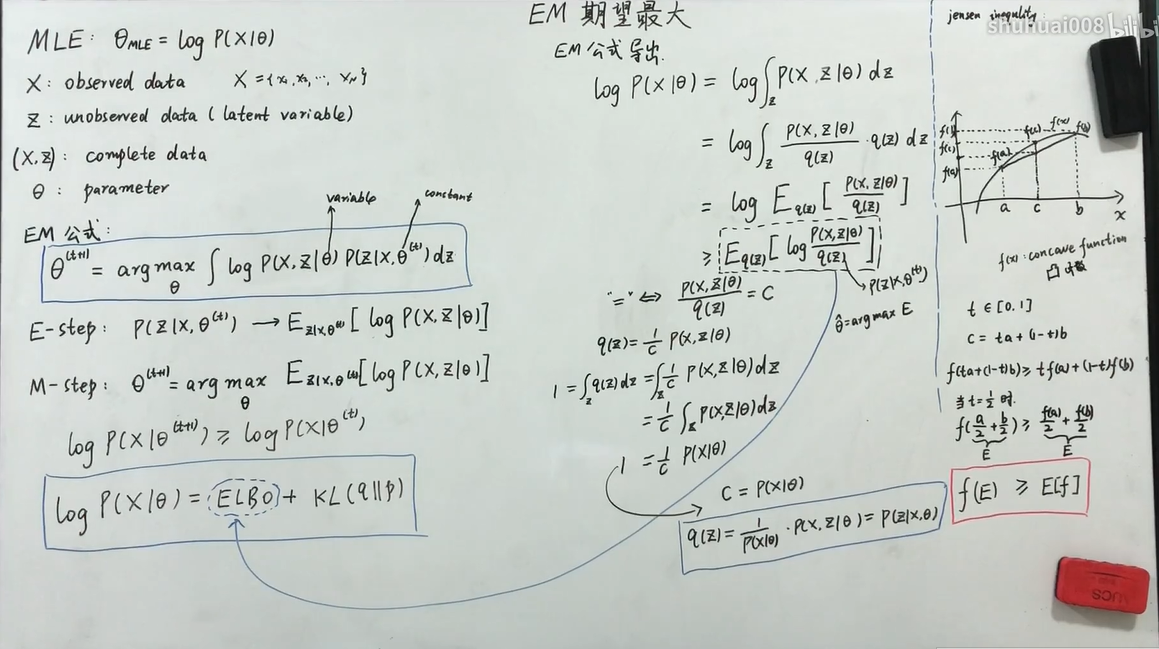 MLE: θ_MLE = log P(X|θ)
X: observed data X = {x₁, x₂, ⋯, x_N}
Z: unobserved data (latent variable)
(X,Z): complete data
θ: parameter
EM 公式:
variable constant
θ^(t+1) = argmax_θ ∫ log P(X,Z|θ) P(Z|X,θ^(t)) dz
E-step: P(Z|X,θ^(t)) → E_{Z|X,θ^(t)} [log P(X,Z|θ)]
M-step: θ^(t+1) = argmax_θ E_{Z|X,θ^(t)} [log P(X,Z|θ)]
log P(X|θ^(t+1)) ≥ log P(X|θ^(t))
log P(X|θ) = ELBO + KL(q||p)
EM 期望最大
EM 公式导出.
log P(X|θ) = log ∫_Z P(X,Z|θ) dz
= log ∫_Z P(X,Z|θ)/q(Z) · q(Z) dz
= log E_{q(Z)} [P(X,Z|θ)/q(Z)]
≥ E_{q(Z)} [log P(X,Z|θ)/q(Z)]
→ P(Z|X,θ^(t))
θ̂ = argmax E
"=" ⇔ P(X,Z|θ)/q(Z) = C
q(Z) = 1/C P(X,Z|θ)
1 = ∫_Z q(Z) dz = ∫_Z 1/C P(X,Z|θ) dz
= 1/C ∫_Z P(X,Z|θ) dz
1 = 1/C P(X|θ)
C = P(X|θ)
q(Z) = 1/P(X|θ) · P(X,Z|θ) = P(Z|X,θ)
jensen inequlity
shuhuai008 bilibili
f(x)
f(b)
f(c)
f(a)
a c b x
f(x): concave function
t ∈ [0.1]
c = ta + (1-t)b
f(ta+(1-t)b) ≥ tf(a) + (1-t)f(b)
当 t = 1/2 时.
f(a/2 + b/2) ≥ f(a)/2 + f(b)/2
E E
f(E) ≥ E[f]